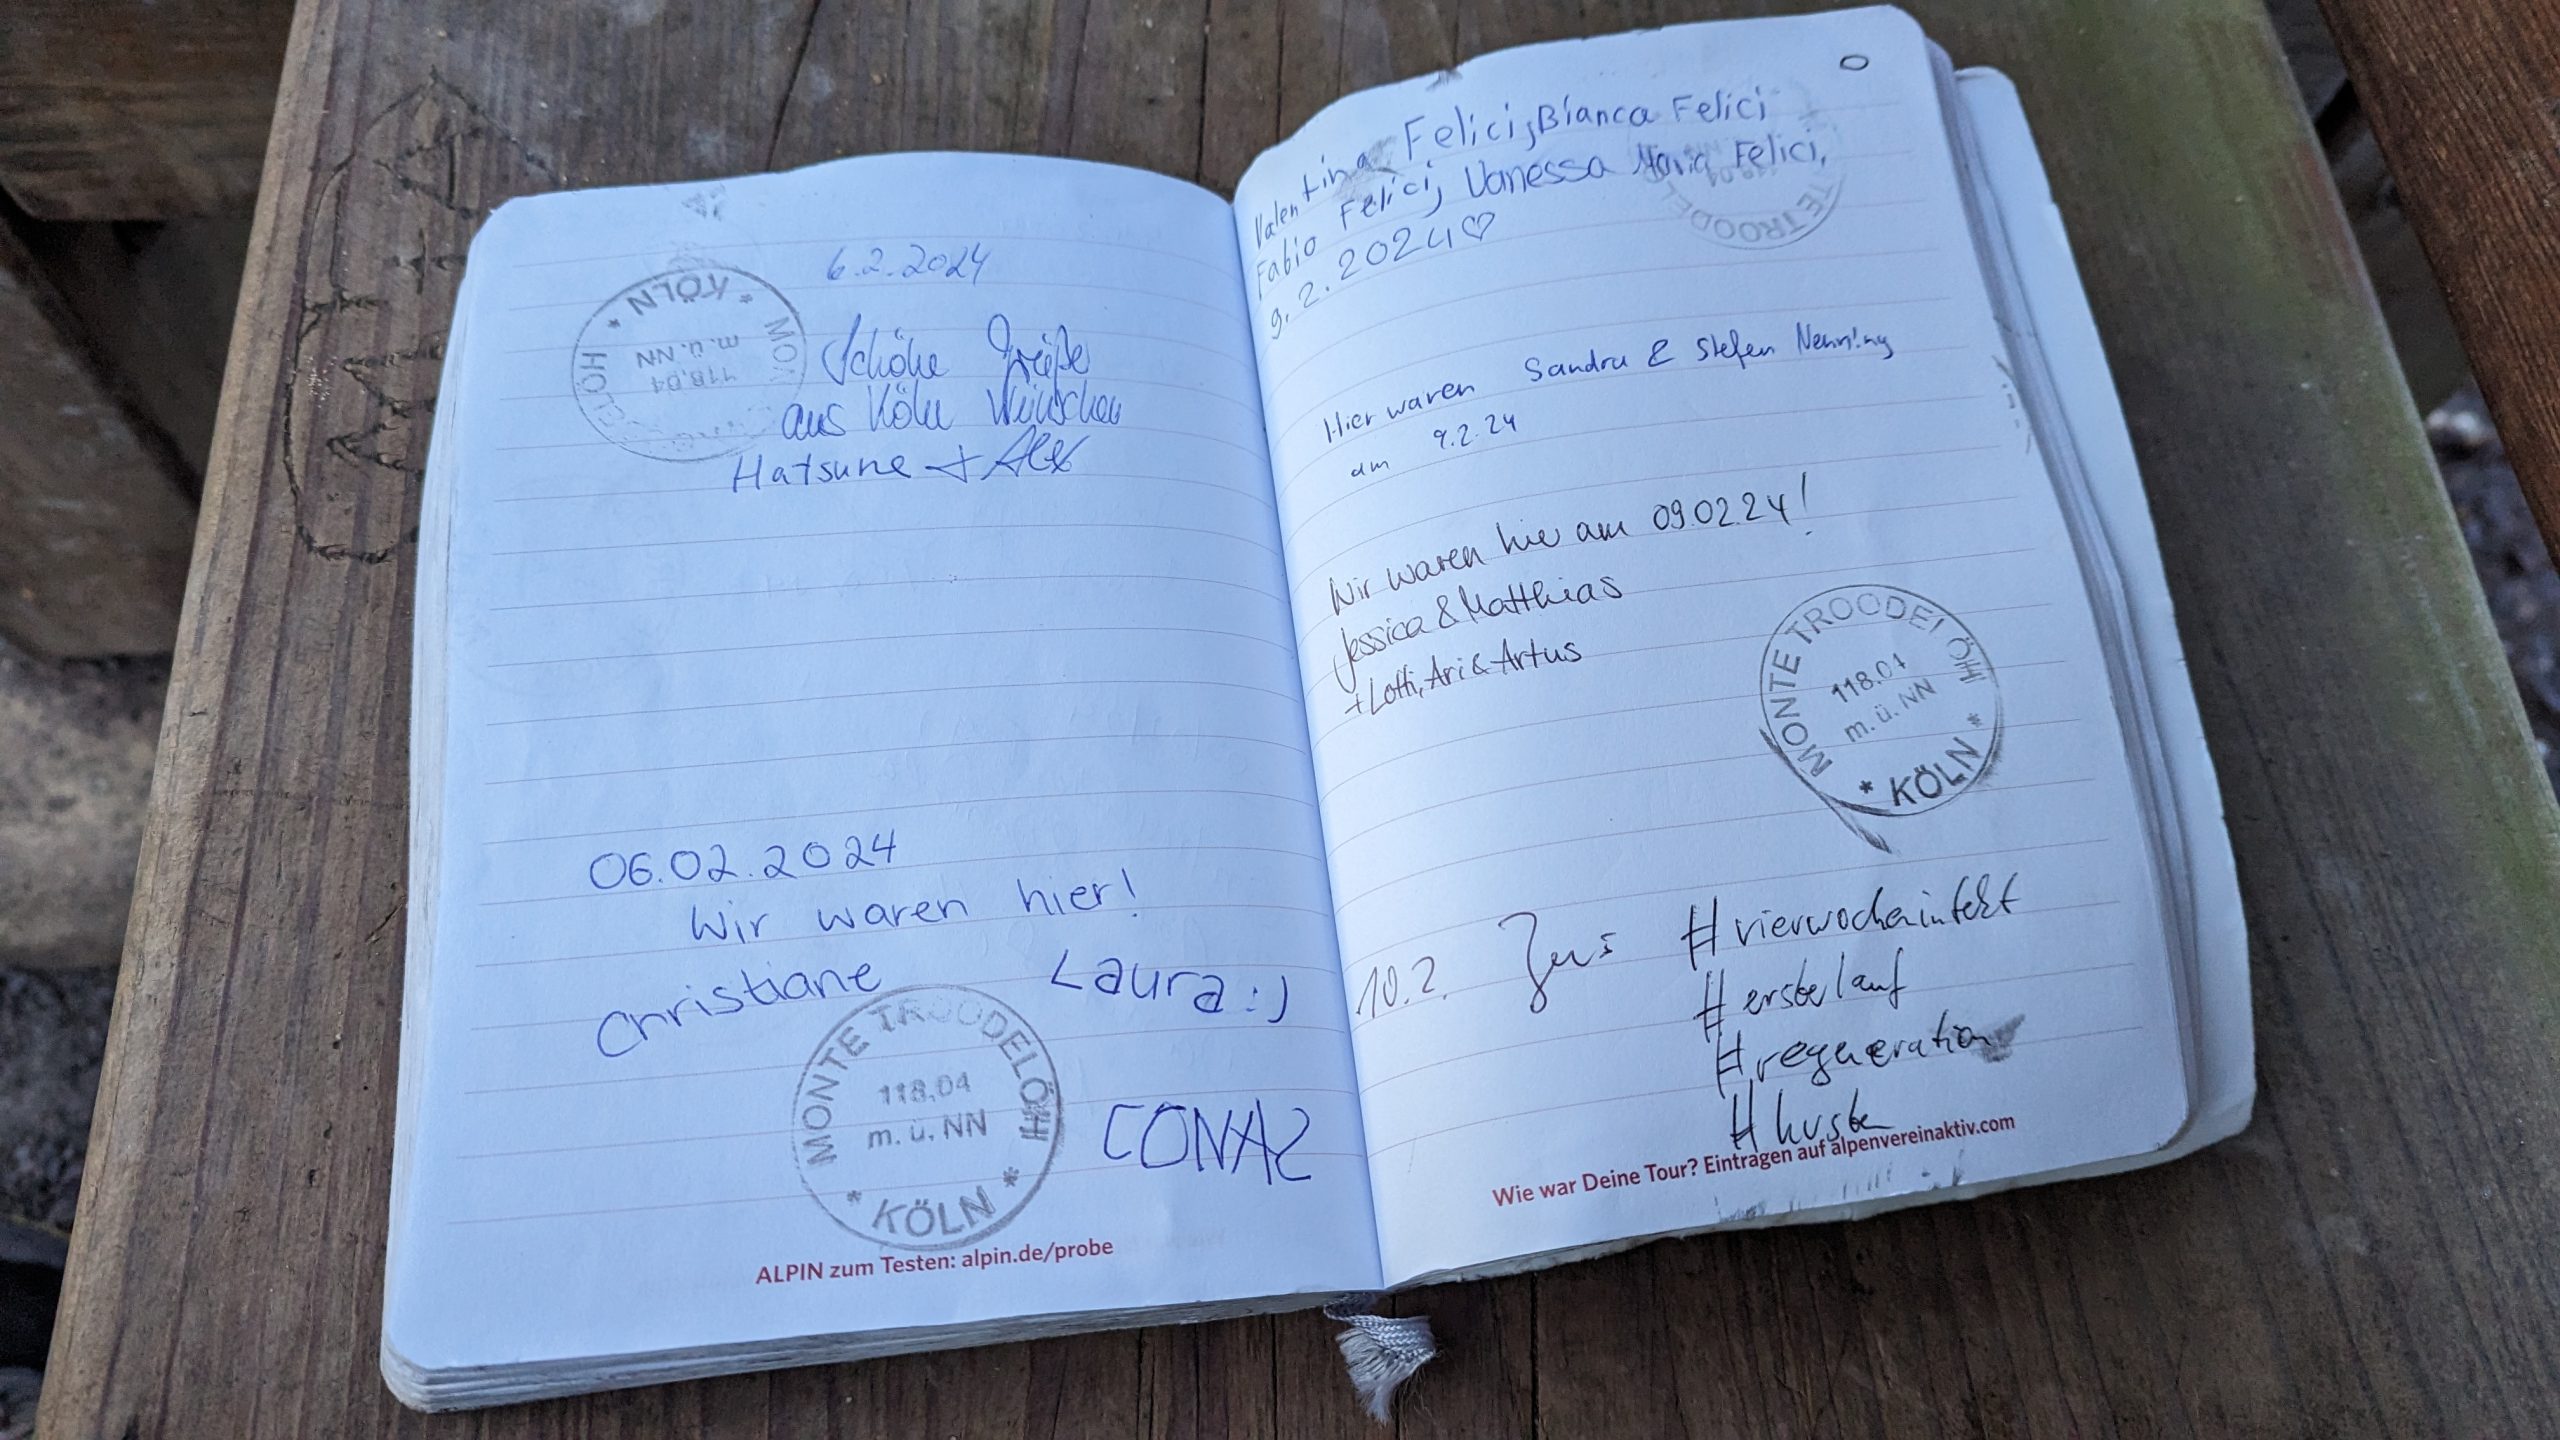 6.2.2024
Schöne Grüße
aus Köln Wünschen
Hatsune + Alex
* KÖLN *
118,04
m.ü.NN
06.02.2024
Wir waren hier!
Christiane Laura :)
MONTE TROODELÖH
118,04
m. ü. NN
* KÖLN *
ALPIN zum Testen: alpin.de/probe
Valentina Felici, Bianca Felici
Fabio Felici, Vanessa Maria Felici,
9.2.2024♡
Hier waren Sandra & Stefen Nenning
am 9.2.24
Wir waren hie am 09.02.24!
Jessica & Matthias
+ Lotti, Ari & Artus
MONTE TROODELÖH
118,04
m. ü. NN
* KÖLN *
10.2. #vierwocheninfekt
#ersterlauf
#regeneration
#husten
Wie war Deine Tour? Eintragen auf alpenvereinaktiv.com